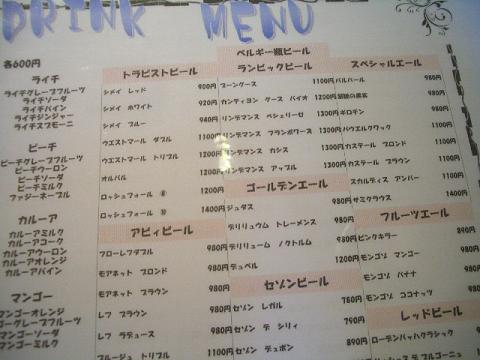 DRINK MENU
各600円
ライチ
ライチグレープフルーツ
ライチソーダ
ライチパイン
ライチジンジャー
ライチスプモーニ
ピーチ
ピーチグレープフルーツ
ピーチウーロン
ピーチソーダ
ピーチミルク
ファジーネーブル
カルーア
カルーアミルク
カルーアコーク
カルーアウーロン
カルーアオレンジ
カルーアパイン
マンゴー
マンゴーオレンジ
ゴーグレープフルーツ
マンゴーソーダ
マンゴーミルク
ベルギー瓶ビール
トラピストビール
シメイ レッド 900円
シメイ ホワイト 920円
シメイ ブルー 940円
ウエストマール ダブル 1100円
ウエストマール トリプル 1200円
オルバル 1200円
ロッシュフォール ⑧ 1200円
ロッシュフォール ⑩ 1400円
アビィビール
フローレフダブル 980円
モアネット ブロンド 980円
モアネット ブラウン 980円
レフ ブラウン 980円
レフ ラデュース 980円
ブルージュ トリプル 1100円
ランビックビール
ブーングース 1100円
カンティヨン グース バイオ 1200円
リンデマンス ペシェリーゼ 1300円
リンデマンス フランボワーズ 1300円
リンデマンス カシス 1300円
リンデマンス アップル 1300円
ゴールデンエール
ジュダス 980円
デリリュウム トレーメンス 980円
デリリューム ノクトルム 980円
デュベル 1200円
セゾンビール
セゾン レガル 780円
セゾン デ シリィ 790円
セゾン デュポン 890円
スペシャルエール
バルバール 980円
980円
ギロチン 980円
パウエルクワック 1100円
カステール ブロンド 1100円
カステール ブラウン 1100円
スカルディス アンバー 1100円
サミクラウス 1400円
フルーツエール
ピンクキラー 890円
モンゴゾ マンゴー 980円
モンゴゾ バナナ 980円
モンゴゾ ココナッツ 980円
レッドビール
ローデンバッハクラシック